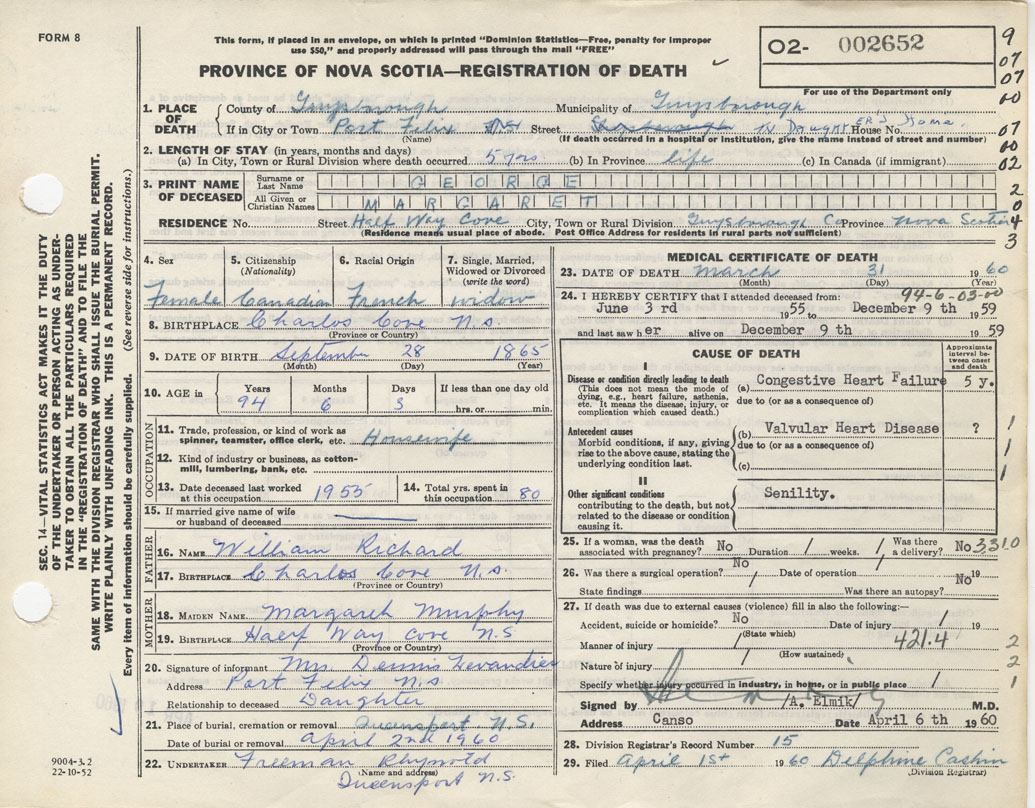 FORM 8
This form, if placed in an envelope, on which is printed "Dominion Statistics—Free, penalty for improper
use $50," and properly addressed will pass through the mail "FREE"
PROVINCE OF NOVA SCOTIA—REGISTRATION OF DEATH
O2- 002652
For use of the Department only
9
07
07
00
07
00
02
2
0
4
3
1. PLACE OF DEATH
County of Guysborough Municipality of Guysborough
If in City or Town Port Felix Street In Daughter's Home House No.
(Name) (If death occurred in a hospital or institution, give the name instead of street and number)
2. LENGTH OF STAY (in years, months and days)
(a) In City, Town or Rural Division where death occurred 5 yrs (b) In Province life (c) In Canada (if immigrant)
3. PRINT NAME OF DECEASED
Surname or Last Name GEORGE
All Given or Christian Names MARGARET
RESIDENCE No. Street Half Way Cove City, Town or Rural Division Guysborough Co Province Nova Scotia
(Residence means usual place of abode. Post Office Address for residents in rural parts not sufficient)
4. Sex 5. Citizenship (Nationality) 6. Racial Origin 7. Single, Married, Widowed or Divorced (write the word)
Female Canadian French widow
8. BIRTHPLACE Charlos Cove N.S.
(Province or Country)
9. DATE OF BIRTH September 28 1865
(Month) (Day) (Year)
10. AGE in Years Months Days If less than one day old
94 6 3 hrs. or min.
OCCUPATION
11. Trade, profession, or kind of work as spinner, teamster, office clerk, etc. Housewife
12. Kind of industry or business, as cotton-mill, lumbering, bank, etc.
13. Date deceased last worked at this occupation 1955 14. Total yrs. spent in this occupation 80
15. If married give name of wife or husband of deceased
FATHER
16. NAME William Richard
17. BIRTHPLACE Charlos Cove N.S.
(Province or Country)
MOTHER
18. MAIDEN NAME Margaret Murphy
19. BIRTHPLACE Half Way Cove N.S
(Province or Country)
20. Signature of informant Mrs. Dennis Levandier
Address Port Felix N.S
Relationship to deceased Daughter
21. Place of burial, cremation or removal Queensport N.S.
Date of burial or removal April 2nd 1960
22. UNDERTAKER Freeman Rhynold
(Name and address)
Queensport N.S.
MEDICAL CERTIFICATE OF DEATH
23. DATE OF DEATH March 31 1960
(Month) (Day) (Year)
94-6-03-00
24. I HEREBY CERTIFY that I attended deceased from:
June 3 rd 1955 to December 9 th 1959
and last saw her alive on December 9 th 1959
CAUSE OF DEATH
Approximate interval between onset and death
I
Disease or condition directly leading to death (a) Congestive Heart Failure 5 y.
(This does not mean the mode of dying, e.g., heart failure, asthenia, etc. It means the disease, injury, or complication which caused death.) due to (or as a consequence of)
Antecedent causes (b) Valvular Heart Disease ?
Morbid conditions, if any, giving rise to the above cause, stating the underlying condition last. due to (or as a consequence of)
(c)
1
1
1
II
Other significant conditions contributing to the death, but not related to the disease or condition causing it. Senility.
25. If a woman, was the death associated with pregnancy? No Duration / weeks. / Was there a delivery? No 3310
26. Was there a surgical operation? No Date of operation / 19
State findings / Was there an autopsy? No
27. If death was due to external causes (violence) fill in also the following:—
Accident, suicide or homicide? No Date of injury / 19
(State which)
Manner of injury / 421.4
(How sustained)
Nature of injury /
Specify whether injury occurred in industry, in home, or in public place /
2
2
1
Signed by /A. Elmik/ M.D.
Address Canso Date April 6 th 1960
28. Division Registrar's Record Number 15
29. Filed April 1st 1960 Delphine Cashin
(Division Registrar)
SEC. 14—VITAL STATISTICS ACT MAKES IT THE DUTY
OF THE UNDERTAKER OR PERSON ACTING AS UNDER-
TAKER TO OBTAIN ALL THE PARTICULARS REQUIRED
IN THE "REGISTRATION OF DEATH" AND TO FILE THE
SAME WITH THE DIVISION REGISTRAR WHO SHALL ISSUE THE BURIAL PERMIT.
WRITE PLAINLY WITH UNFADING INK. THIS IS A PERMANENT RECORD.
Every item of information should be carefully supplied. (See reverse side for instructions.)
9004-3.2
22-10-52